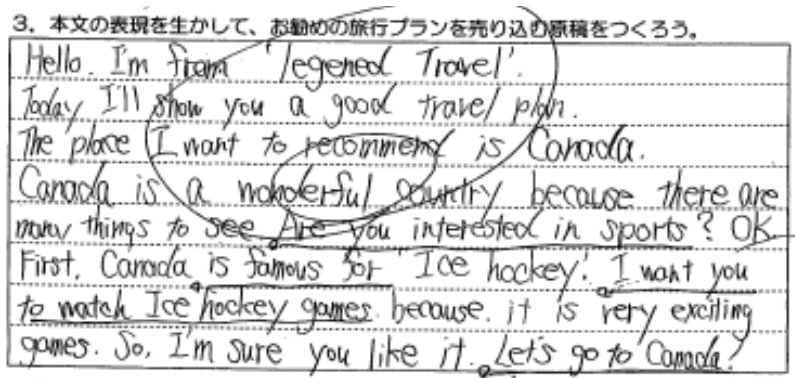 3. 本文の表現を生かして、お勧めの旅行プランを売り込む原稿をつくろう。
Hello. I'm from 'legened Travel'.
Today I'll show you a good travel plan.
The place I want to recommend is Canada.
Canada is a wohderful country because there are
many things to see. Are you interested in sports? OK
First, Canada is famous for 'Ice hockey'. I want you
to watch Ice hockey games. because. it is very exciting
games. So, I'm sure you like it. Let's go to Canada!